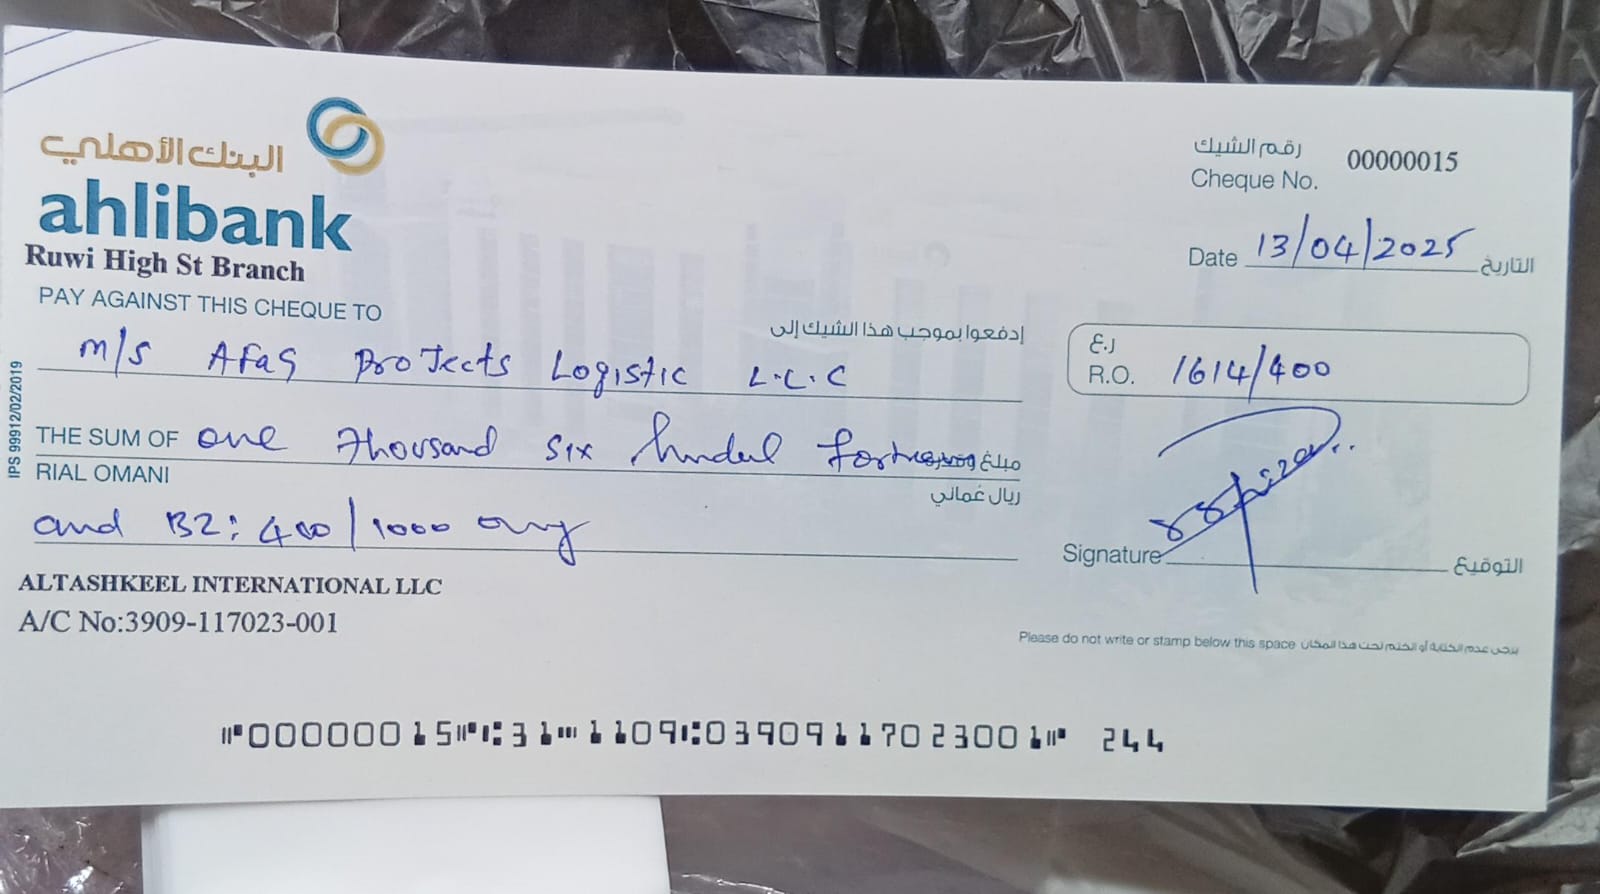 البنك الأهلي
ahlibank
Ruwi High St Branch
رقم الشيك
Cheque No. 00000015
Date 13/04/2025 التاريخ
PAY AGAINST THIS CHEQUE TO
إدفعوا بموجب هذا الشيك إلى
M/S Afaq Projects Logistic L.L.C
ر.ع
R.O. 1614/400
THE SUM OF one thousand six مبلغ وقدره
RIAL OMANI ريال غماني
and BZ: 400/1000 only
Signature التوقيع
ALTASHKEEL INTERNATIONAL LLC
A/C No:3909-117023-001
Please do not write or stamp below this space يرجى عدم الكتابة أو الختم تحت هذا المكان
⑈00000015⑈⑆31⑉1109⑆03909117023001⑈ 244
IPS 99912/02/2019